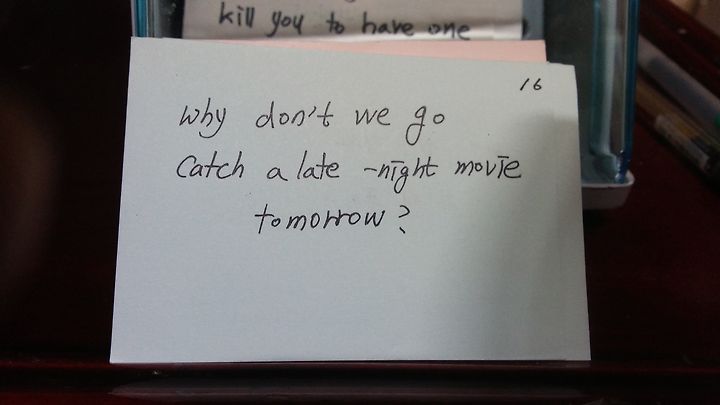 kill you to have one
16
Why don't we go
catch a late -night movie
tomorrow?